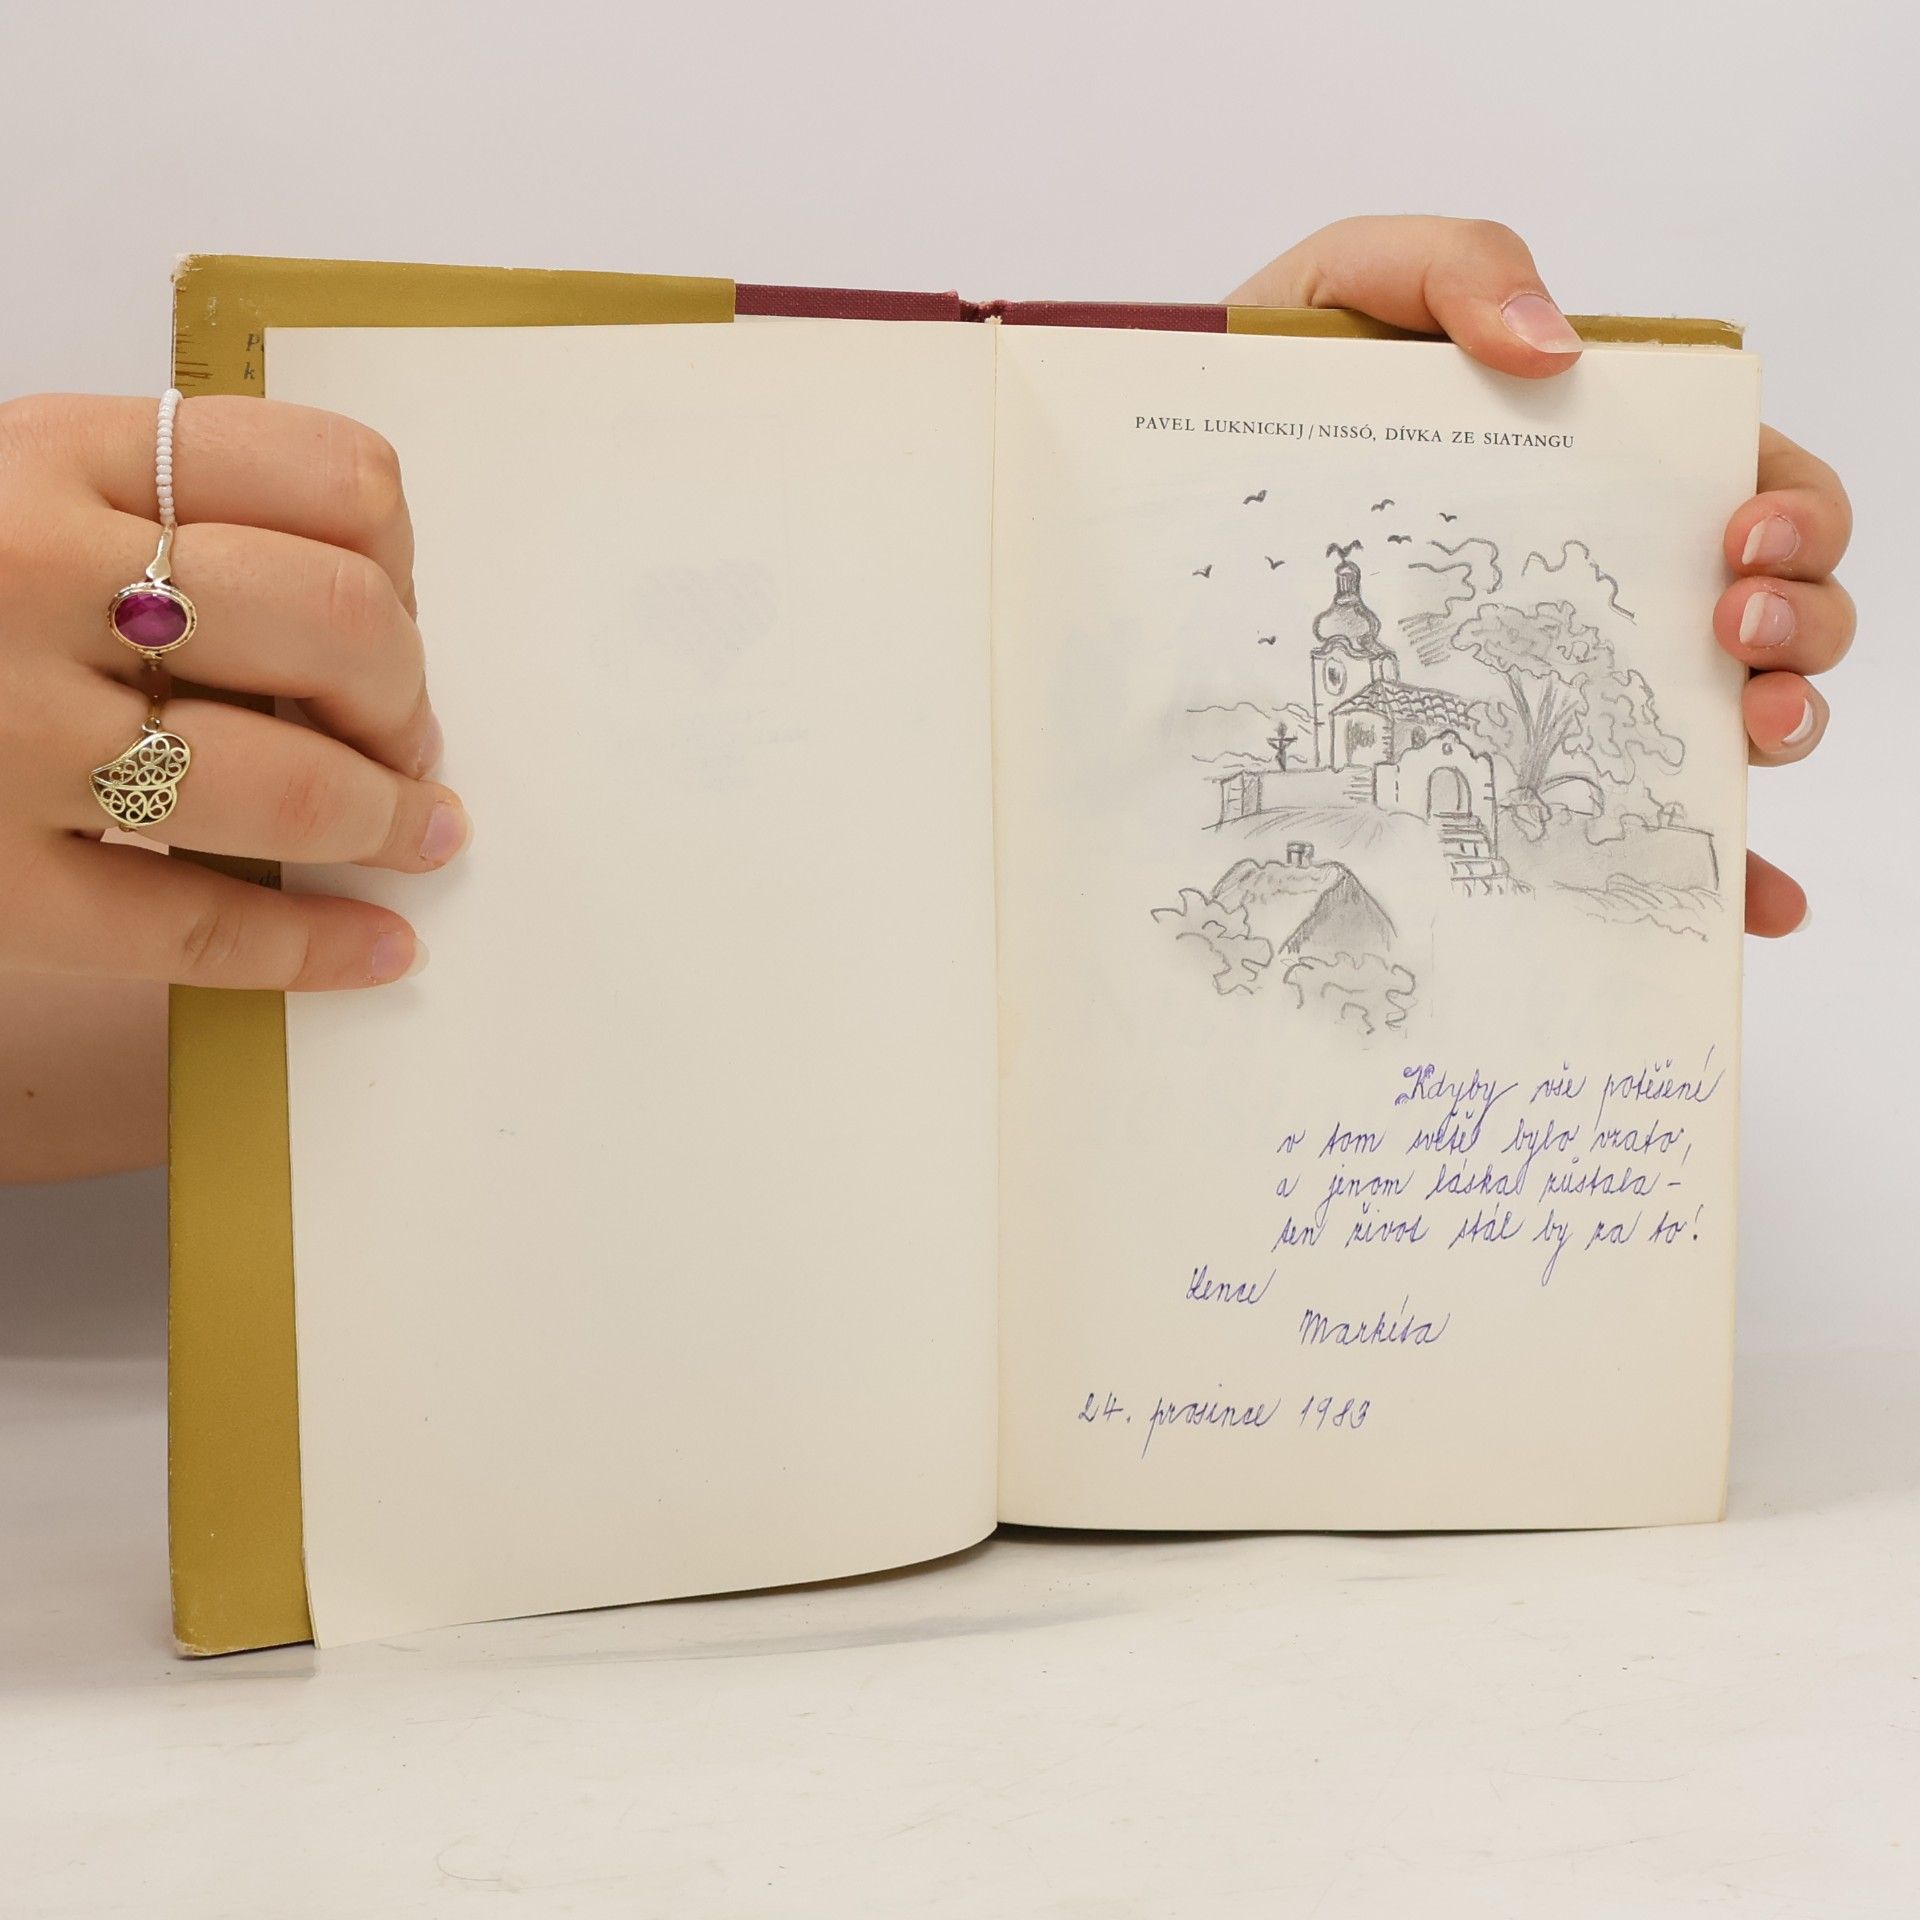 PAVEL LUKNICKIJ / NISSÓ, DÍVKA ZE SIATANGU
Kdyby vše potěšení
v tom světě bylo vzato,
a jenom láska zůstala –
ten život stál by za to!
Lence
Markéta
24. prosince 1983